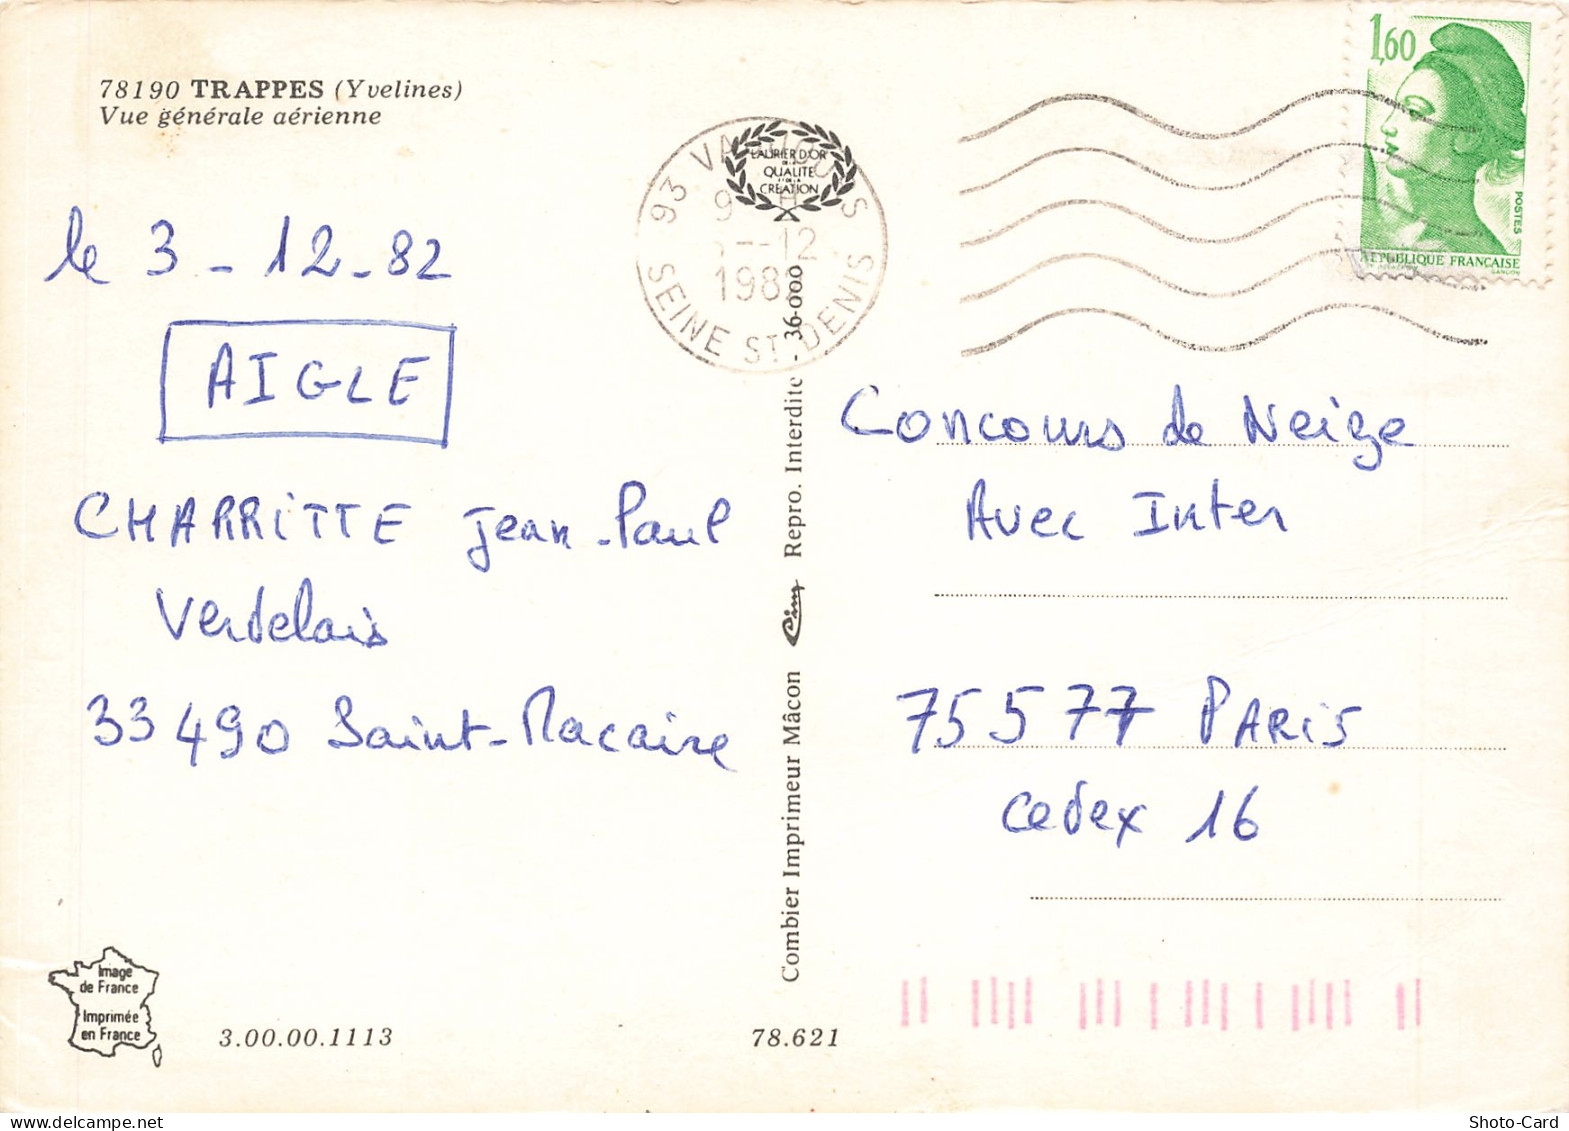 78190 TRAPPES (Yvelines)
Vue générale aérienne
le 3 - 12 - 82
AIGLE
CHARRITTE Jean-Paul
Verdelais
33490 Saint-Macaire
Image
de France
Imprimée
en France
3.00.00.1113
78.621
Combier Imprimeur Mâcon Cim Repro. Interdite - 36-000
LAURIER D'OR
DE LA
QUALITÉ
ET DE LA
CRÉATION
93
12
198
SEINE ST DENIS
1,60
POSTES
REPUBLIQUE FRANCAISE
GANDON
Concours de Neige
Avec Inter
75577 PARIS
Cedex 16
Shoto-Card